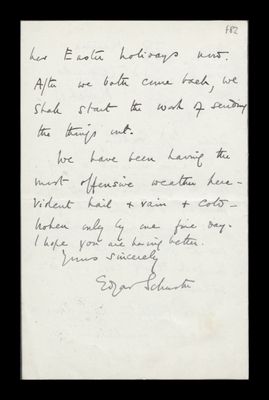 482
her Easter holidays now.
After we both come back, we
shall start the work of sending
the things out.
We have been having the
most offensive weather here –
violent hail & rain & cold –
broken only by one fine day.
I hope you are having better.
Yours sincerely
Edgar Schuster